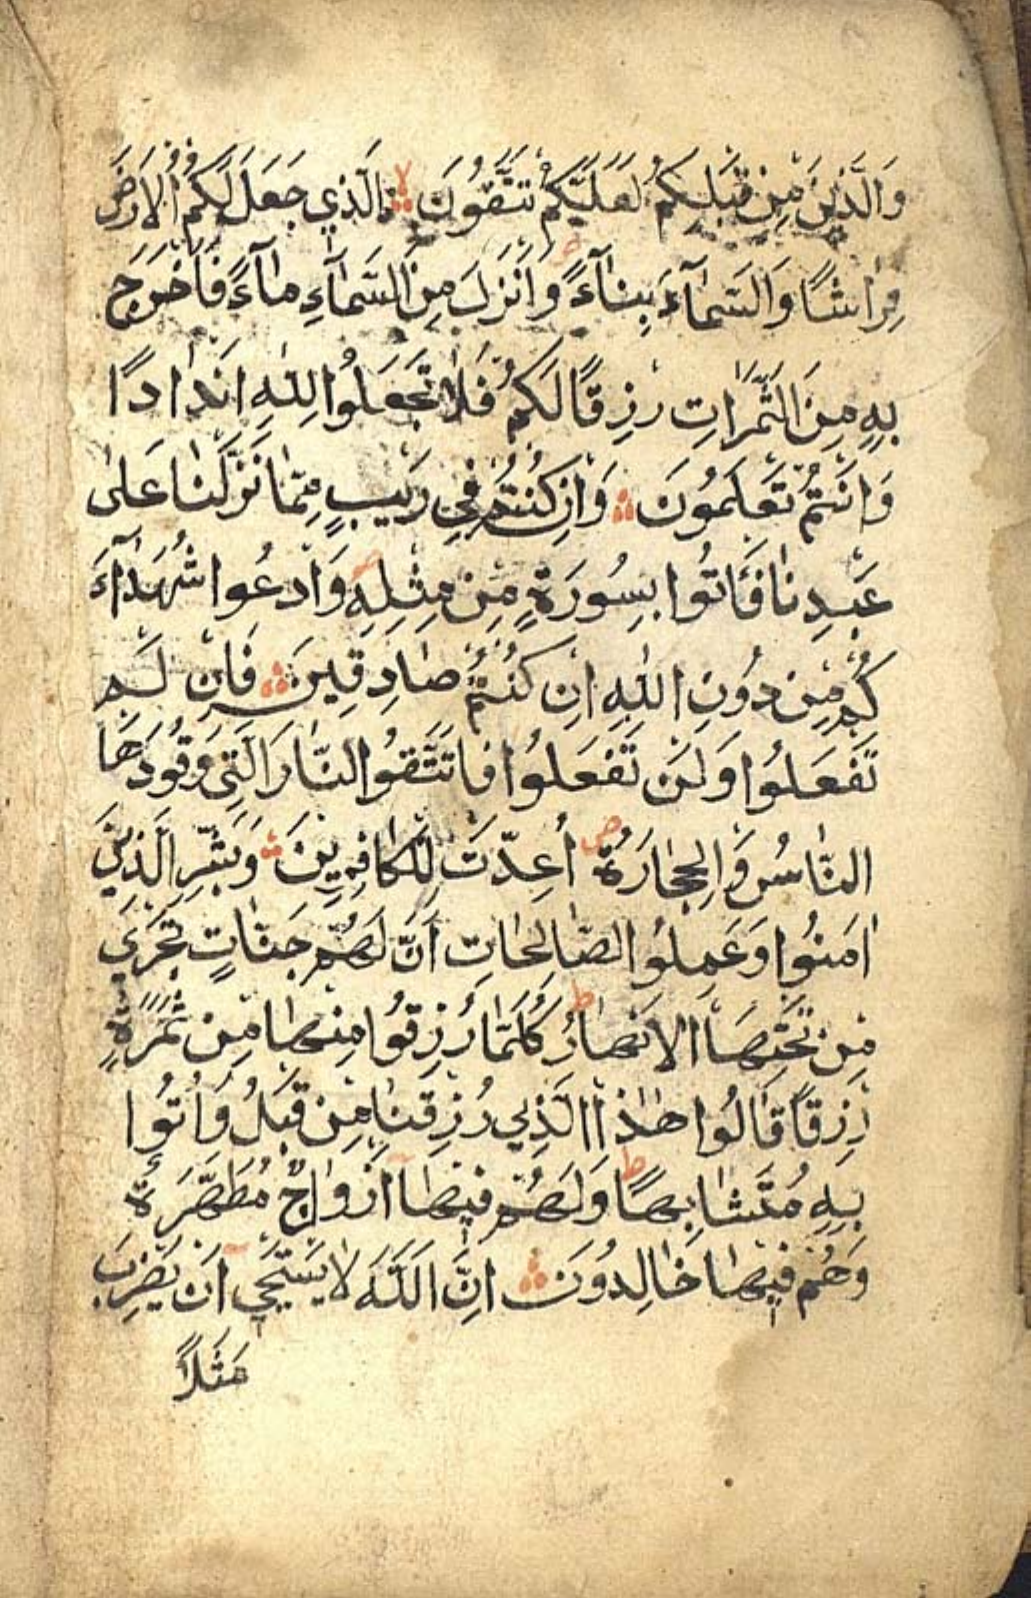 وَالَّذِينَ مِنْ قَبْلِكُمْ لَعَلَّكُمْ تَتَّقُونَ لا الَّذِي جَعَلَ لَكُمُ الْاَرْضَ
فِرَاشًا وَالسَّمَآءَ بِنَآءً وَاَنْزَلَ مِنَ السَّمَآءِ مَآءً فَاَخْرَجَ
بِهِ مِنَ الثَّمَرَاتِ رِزْقًا لَكُمْ فَلَا تَجْعَلُوا لِلّٰهِ اَنْدَادًا
وَاَنْتُمْ تَعْلَمُونَ وَاِنْ كُنْتُمْ فِي رَيْبٍ مِمَّا نَزَّلْنَا عَلٰى
عَبْدِنَا فَأْتُوا بِسُورَةٍ مِنْ مِثْلِهِ وَادْعُوا شُهَدَآءَ
كُمْ مِنْ دُونِ اللّٰهِ اِنْ كُنْتُمْ صَادِقِينَ فَاِنْ لَمْ
تَفْعَلُوا وَلَنْ تَفْعَلُوا فَاتَّقُوا النَّارَ الَّتِي وَقُودُهَا
النَّاسُ وَالْحِجَارَةُ ص أُعِدَّتْ لِلْكَافِرِينَ وَبَشِّرِ الَّذِينَ
اٰمَنُوا وَعَمِلُوا الصَّالِحَاتِ اَنَّ لَهُمْ جَنَّاتٍ تَجْرِي
مِنْ تَحْتِهَا الْاَنْهَارُ ط كُلَّمَا رُزِقُوا مِنْهَا مِنْ ثَمَرَةٍ
رِزْقًا قَالُوا هٰذَا الَّذِي رُزِقْنَا مِنْ قَبْلُ وَاُتُوا
بِهِ مُتَشَابِهًا ط وَلَهُمْ فِيهَآ اَزْوَاجٌ مُطَهَّرَةٌ
وَهُمْ فِيهَا خَالِدُونَ اِنَّ اللّٰهَ لَا يَسْتَحْيِ اَنْ يَضْرِبَ
مَثَلًا